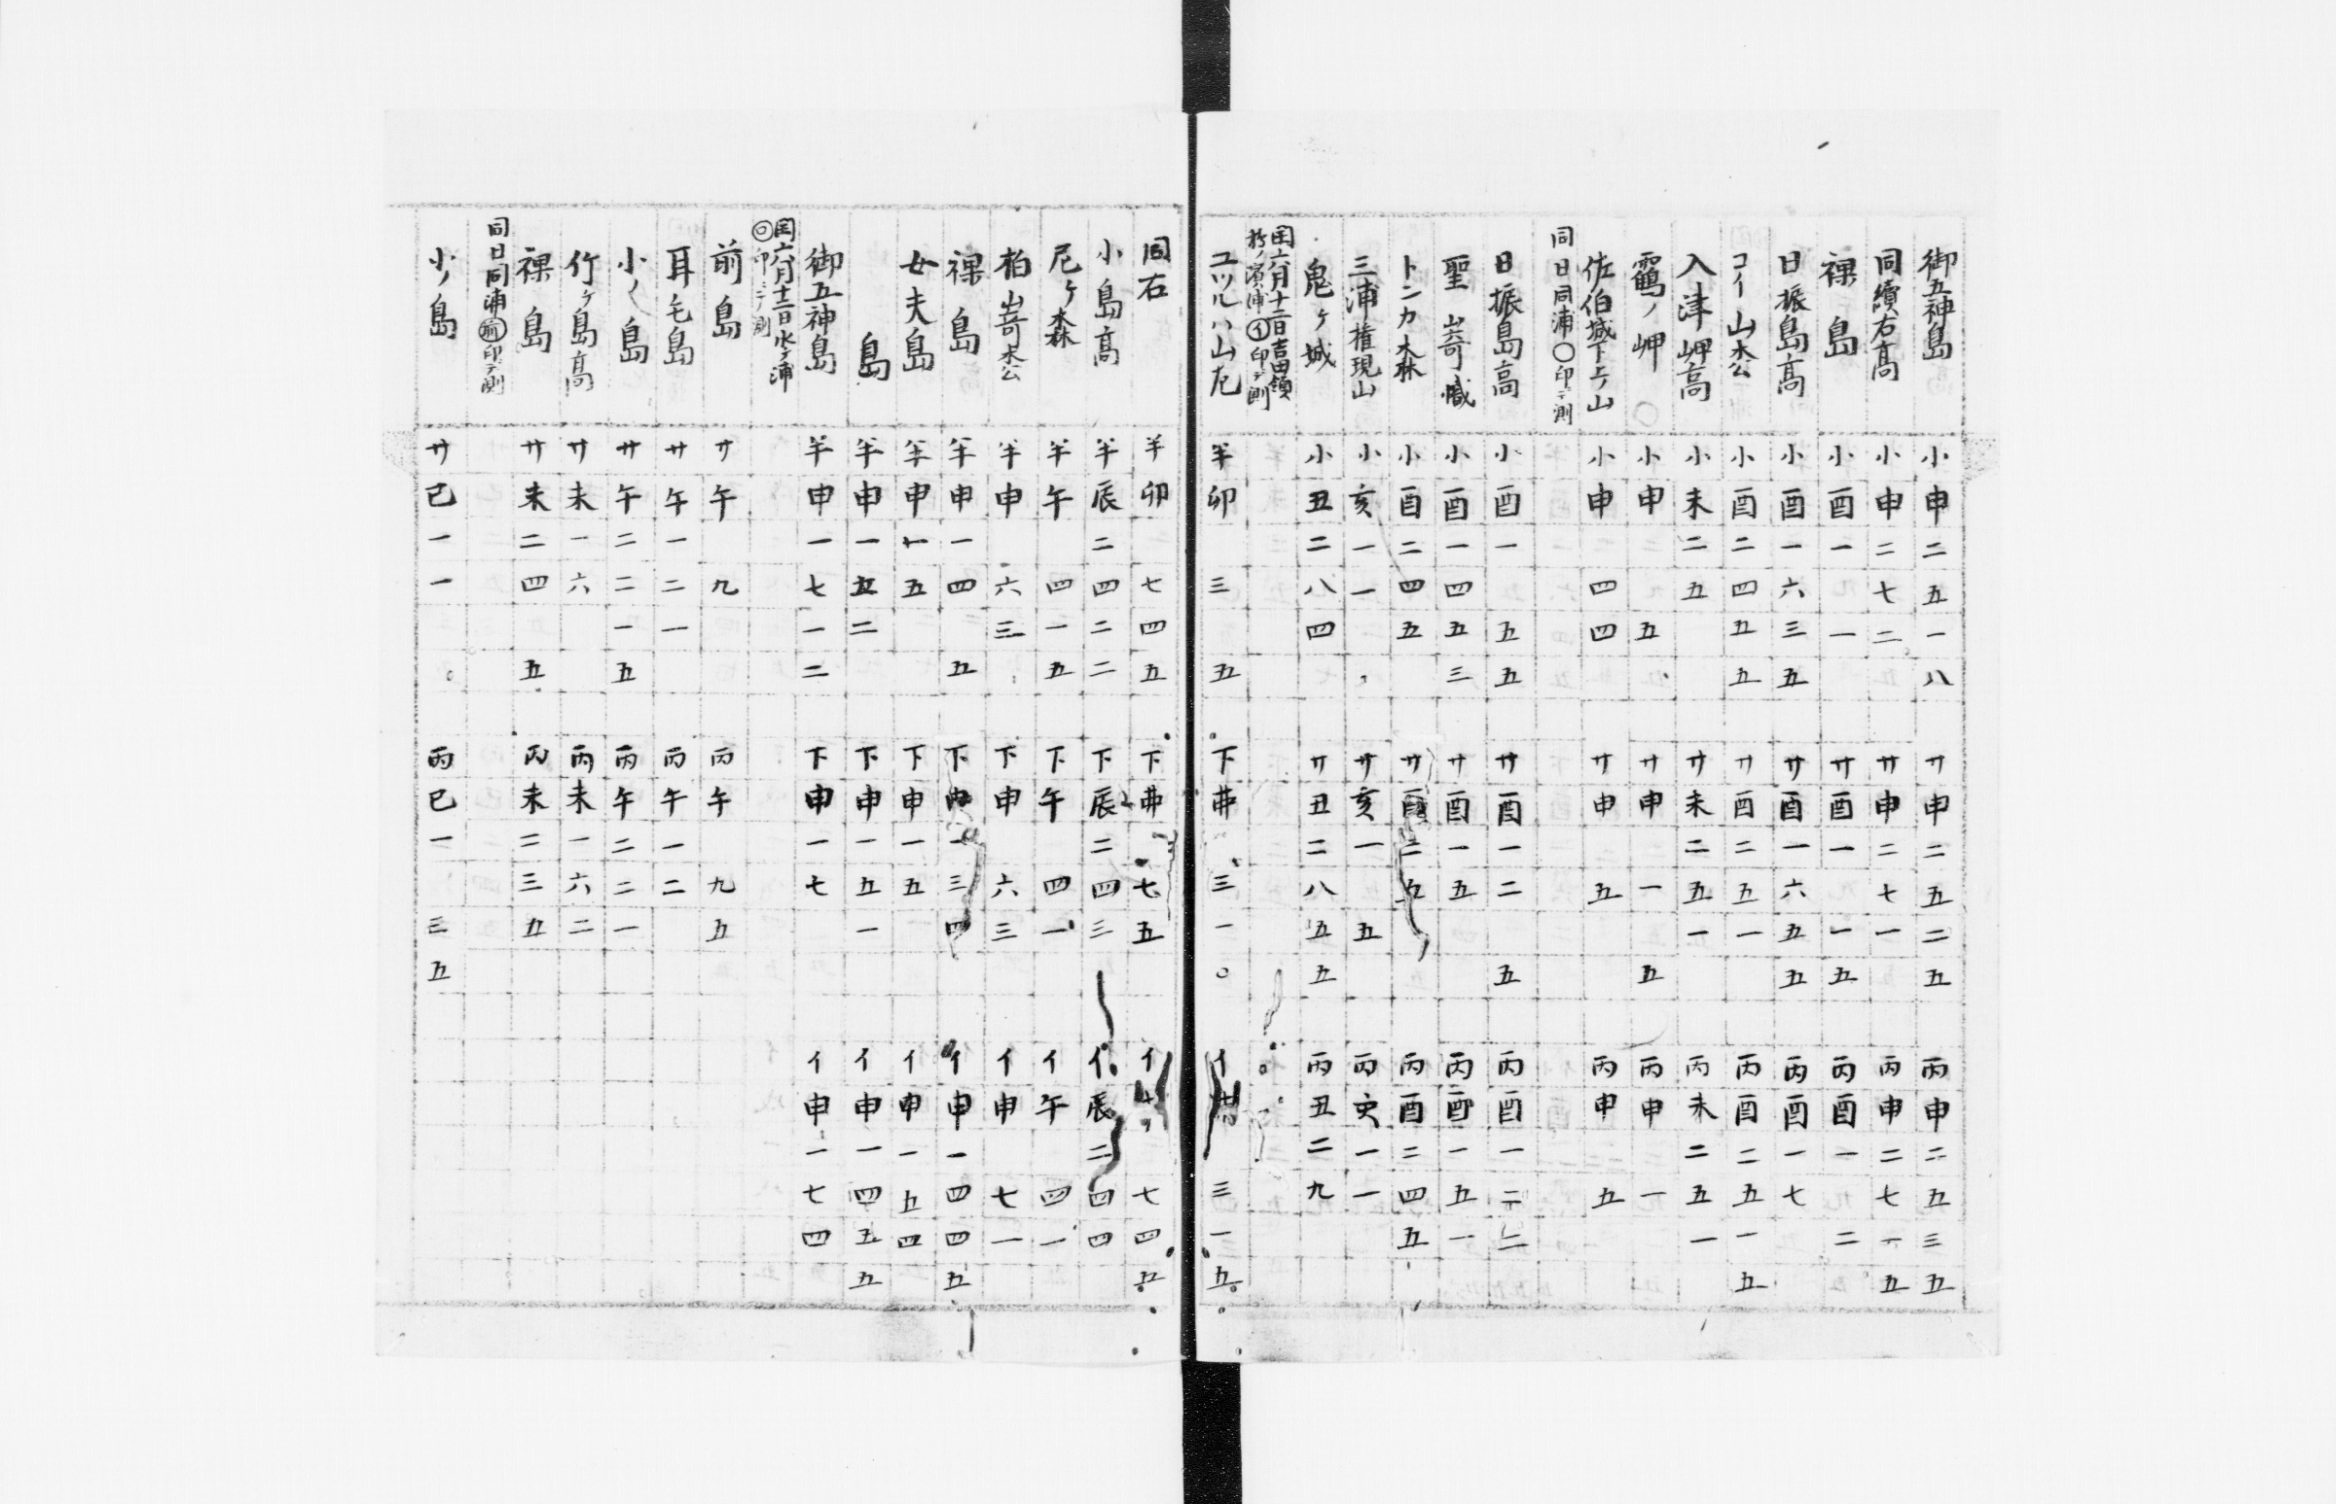 御五神島 小申二五一八 廿申二五二五 丙申二五三五
同續右高 小申二七二 廿申二七一 丙申二七一五
裸島 小酉一 一 廿酉一 一五 丙酉一 二
日振島髙 小酉一六三五 廿酉一六五五 丙酉一七
コイ山木公 小酉二四五五 廿酉二五一 丙酉二五一五
入津岬高 小未二五 廿未二五一 丙未二五一
鶴ノ岬 小申 五 廿申 一 五 丙申 一
佐伯城下上ノ山 小申 四四 廿申 五 丙申 五
同日同浦〇印ニテ測
日振島高 小酉一 五五 廿酉一二 五 丙酉一二二
聖嵜 小酉一四五三 廿酉一五 丙酉一五一
トンカ森 小酉二四五 廿酉二五 丙酉二四五
三浦権現山 小亥一一 廿亥一 五 丙亥一一
鬼ヶ城 小丑二八四 廿丑二八五五 丙丑二九
閏六月十二日吉田領
濱浦イ印ニテ測
ユツルハ山左 半卯 三 五 下卯 三一〇 イ卯 三一五
同右 半卯 七四五 下卯 七五 イ卯 七四五
小島高 半辰二四二二 下辰二四三 イ辰二四四
尼ヶ森 半午 四一五 下午 四一 イ午 四一
柏嵜木公 半申 六三 下申 六三 イ申 七一
裸島 半申一四 五 下申一三四 イ申一四四五
女夫島 半申一五 下申一五 イ申一五四
島 半申一五二 下申一五一 イ申一四五五
御五神島 半申一七一二 下申一七 イ申一七四
閏六月十三日水ヶ浦
〇印ニテ測
前島 廿午 九 丙午 九五
耳毛島 廿午一二一 丙午一二
小ノ島 廿午二二一五 丙午二二一
竹ヶ島高 廿未一六 丙未一六二
裸島 廿未二四 五 丙未二三五
同日同浦前印ニテ測
小ノ島 廿巳一一 丙巳一 三五